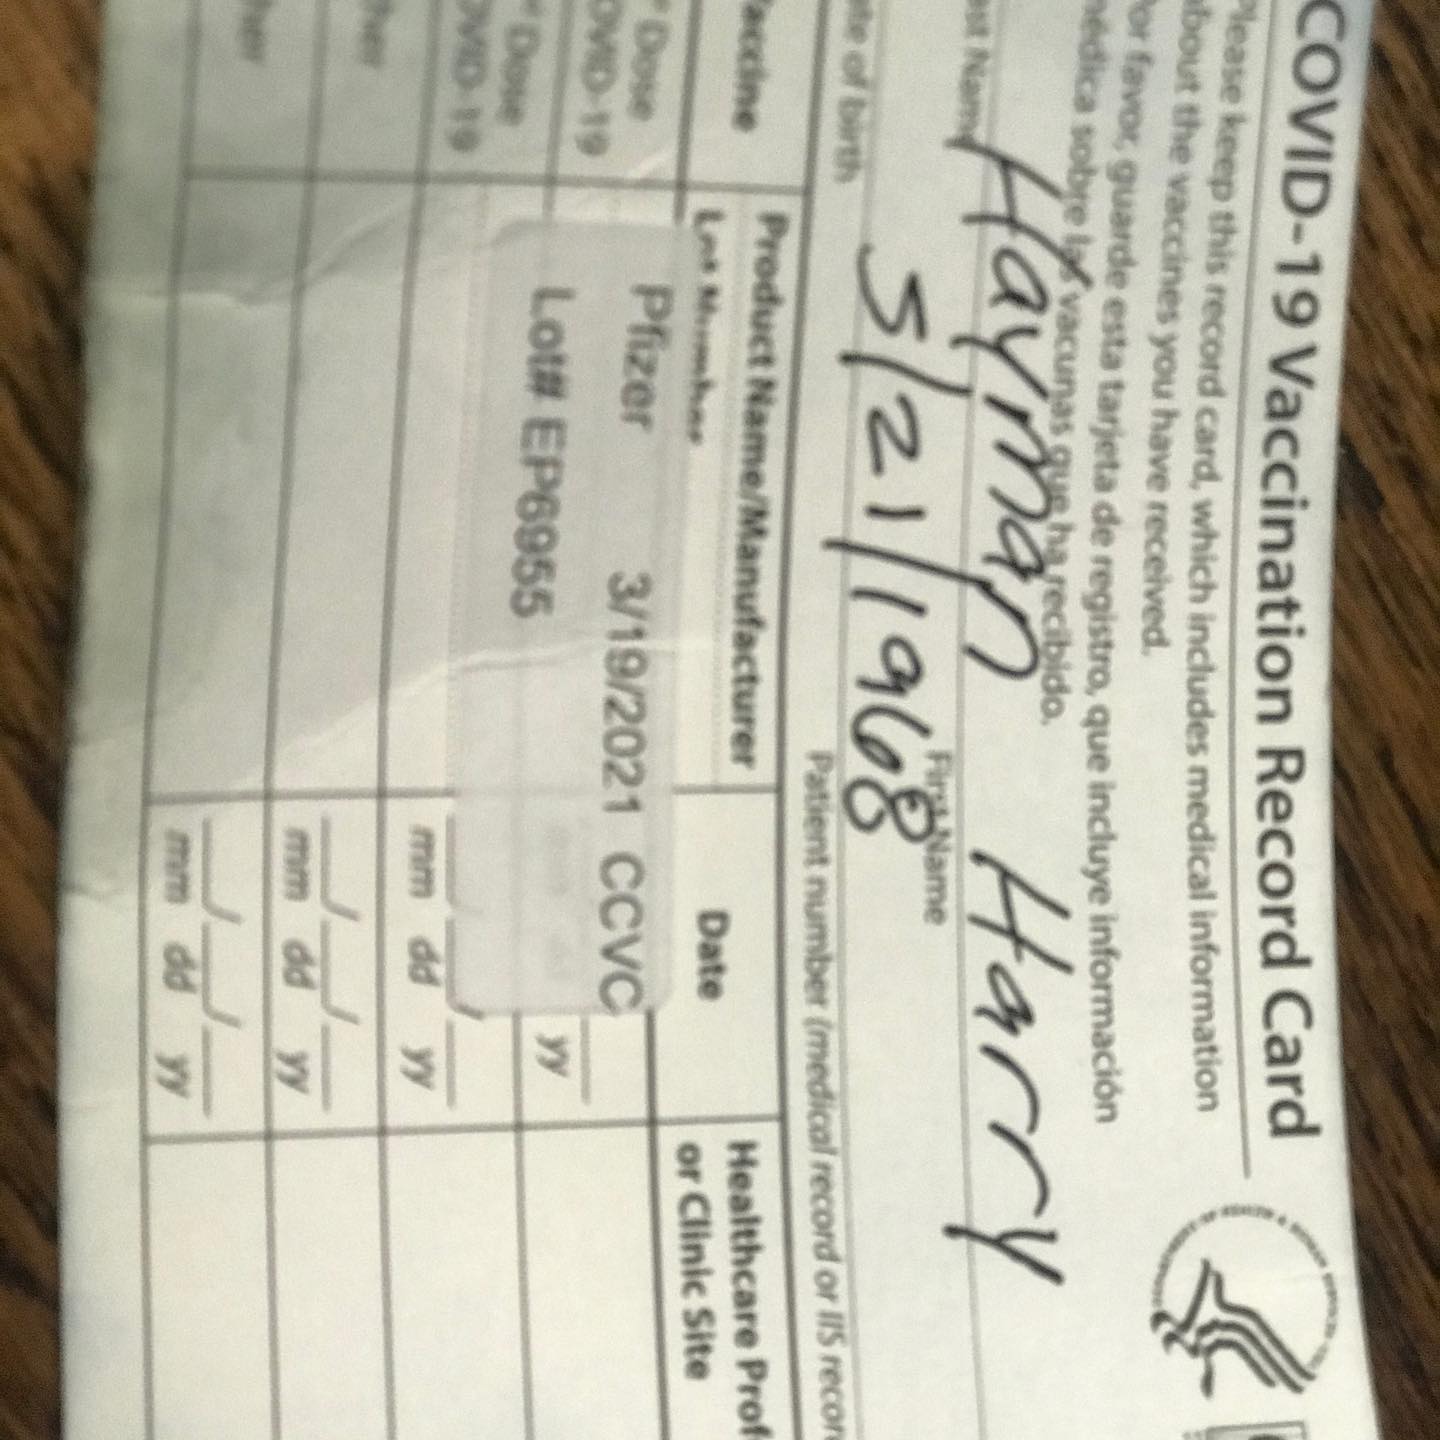 COVID-19 Vaccination Record Card
Please keep this record card, which includes medical information
about the vaccines you have received.
Por favor, guarde esta tarjeta de registro, que incluye información
médica sobre las vacunas que ha recibido.
Hayman Harry
Last Name First Name
5/21/1968
Date of birth Patient number (medical record or IIS record
Vaccine Product Name/Manufacturer Date Healthcare Prof
Lot Number or Clinic Site
Dose
COVID-19
Pfizer 3/19/2021 CCVC
Lot# EP6955
yy
Dose
COVID-19
mm dd yy
ther
mm dd yy
ther
mm dd yy